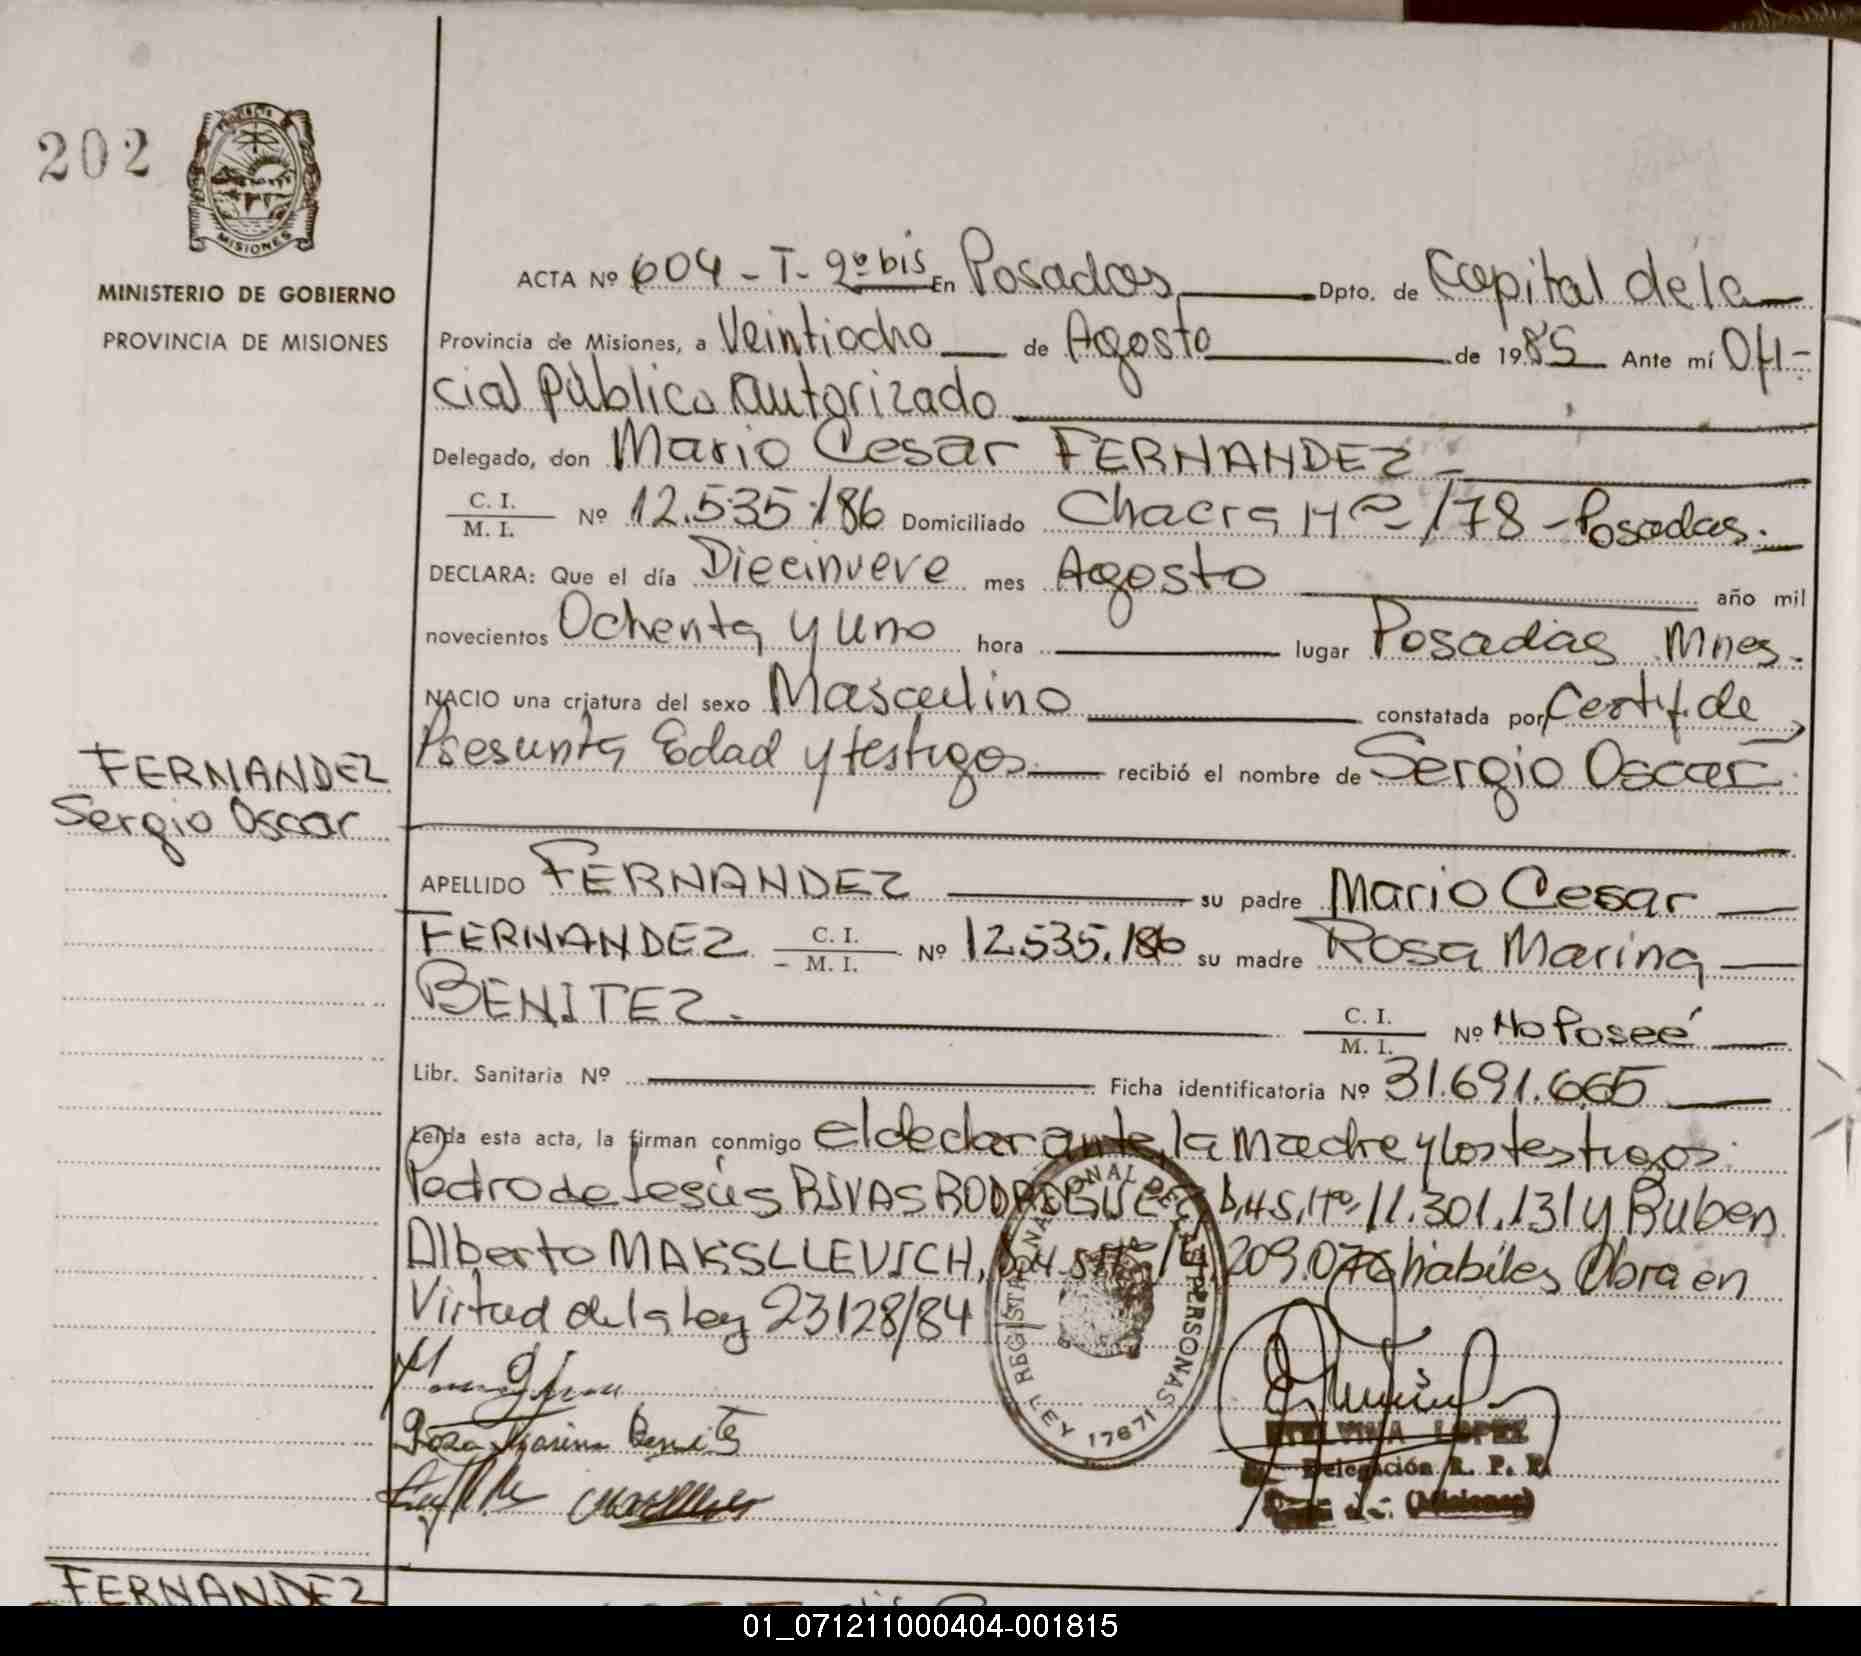 202
PROVINCIA DE
MISIONES
MINISTERIO DE GOBIERNO
PROVINCIA DE MISIONES
FERNANDEZ
Sergio Oscar
ACTA Nº 604 - T- 2º bis En Posadas Dpto. de Capital de la
Provincia de Misiones, a Veintiocho de Agosto de 1985 Ante mí Ofi-
cial Público autorizado
Delegado, don Mario Cesar FERNANDEZ -
C. I. / M. I. Nº 12.535.186 Domiciliado Chacra Nº 178 - Posadas.
DECLARA: Que el día Diecinueve mes Agosto año mil
novecientos Ochenta y uno hora lugar Posadas Mnes.
NACIO una criatura del sexo Masculino constatada por Certif. de
Presunta Edad y testigos recibió el nombre de Sergio Oscar
APELLIDO FERNANDEZ su padre Mario Cesar
FERNANDEZ C. I. / M. I. Nº 12.535.186 su madre Rosa Marina
BENITEZ. C. I. / M. I. Nº No Poseé
Libr. Sanitaria Nº Ficha identificatoria Nº 31.691.665
Leída esta acta, la firman conmigo el declarante, la Madre y los testigos:
Pedro de Jesús RIVAS RODRIGUEZ D.N.I. Nº 11.301.131 y Ruben
Alberto MAKSLLEVICH, 209.076 habiles Obra en
Virtud de la Ley 23128/84
REGISTRO NACIONAL DE LAS PERSONAS
LEY 17671
Rosa Marina Benitez
ETELVINA LOPEZ
Delegación R. P. P.
(Misiones)
FERNANDEZ
01_071211000404-001815